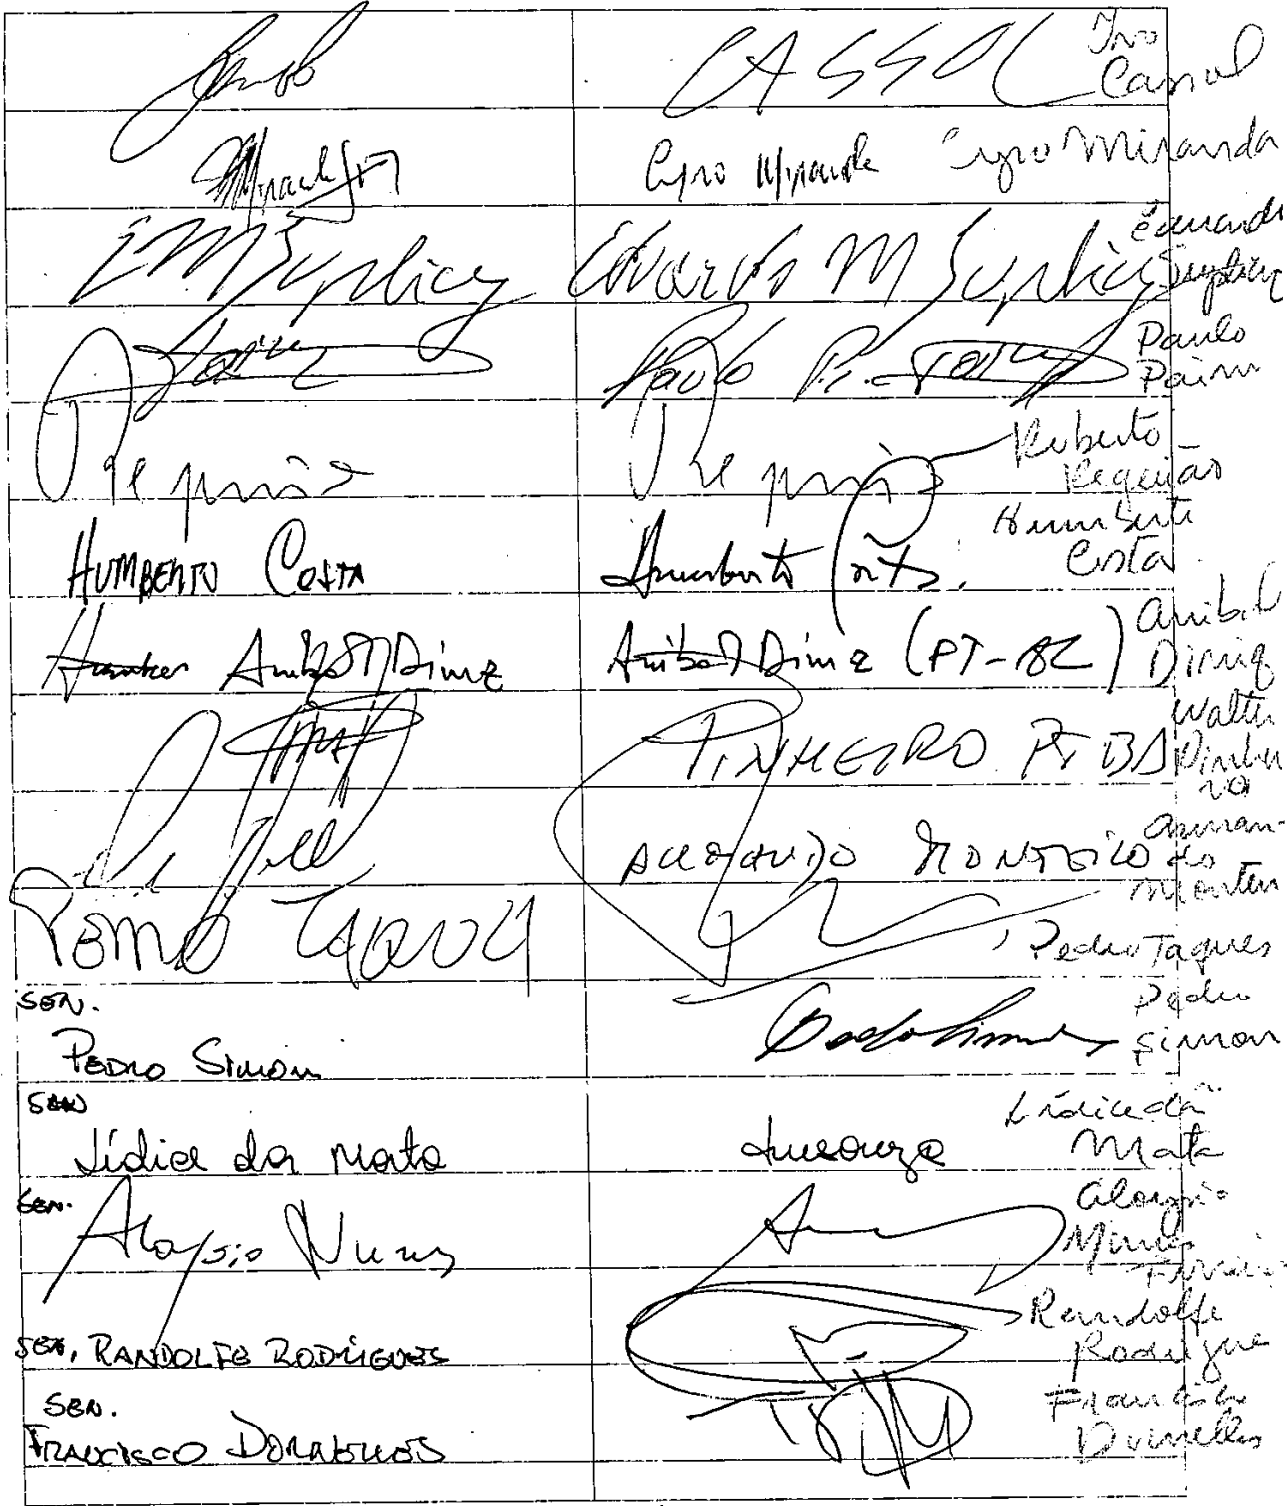 CASSOL Ivo
Cassol
Cyro Miranda Cyro Miranda
EMSuplicy Eduardo M Suplicy Eduardo
Suplicy
Paulo P. Paim Paulo
Paim
Requião Requião Roberto
Requião
HUMBERTO COSTA Humberto Costa. Humberto
Costa
Anibal Diniz Anibal Diniz (PT-AC) Anibal
Diniz
PINHEIRO PT BA Walter
Pinheiro
ARMANDO MONTEIRO Arman-
do
Monteiro
PEDRO TAQUES Pedro Taques
SEN.
PEDRO SIMON Pedro Simon Pedro
Simon
SEN
Lídice da Mata Lídice da
Mata
SEN.
Aloysio Nunes Aloysio
Nunes
Ferreira
SEN. RANDOLFE RODRIGUES Randolfe
Rodrigue
SEN.
FRANCISCO DORNELLES Francisco
Dornelles